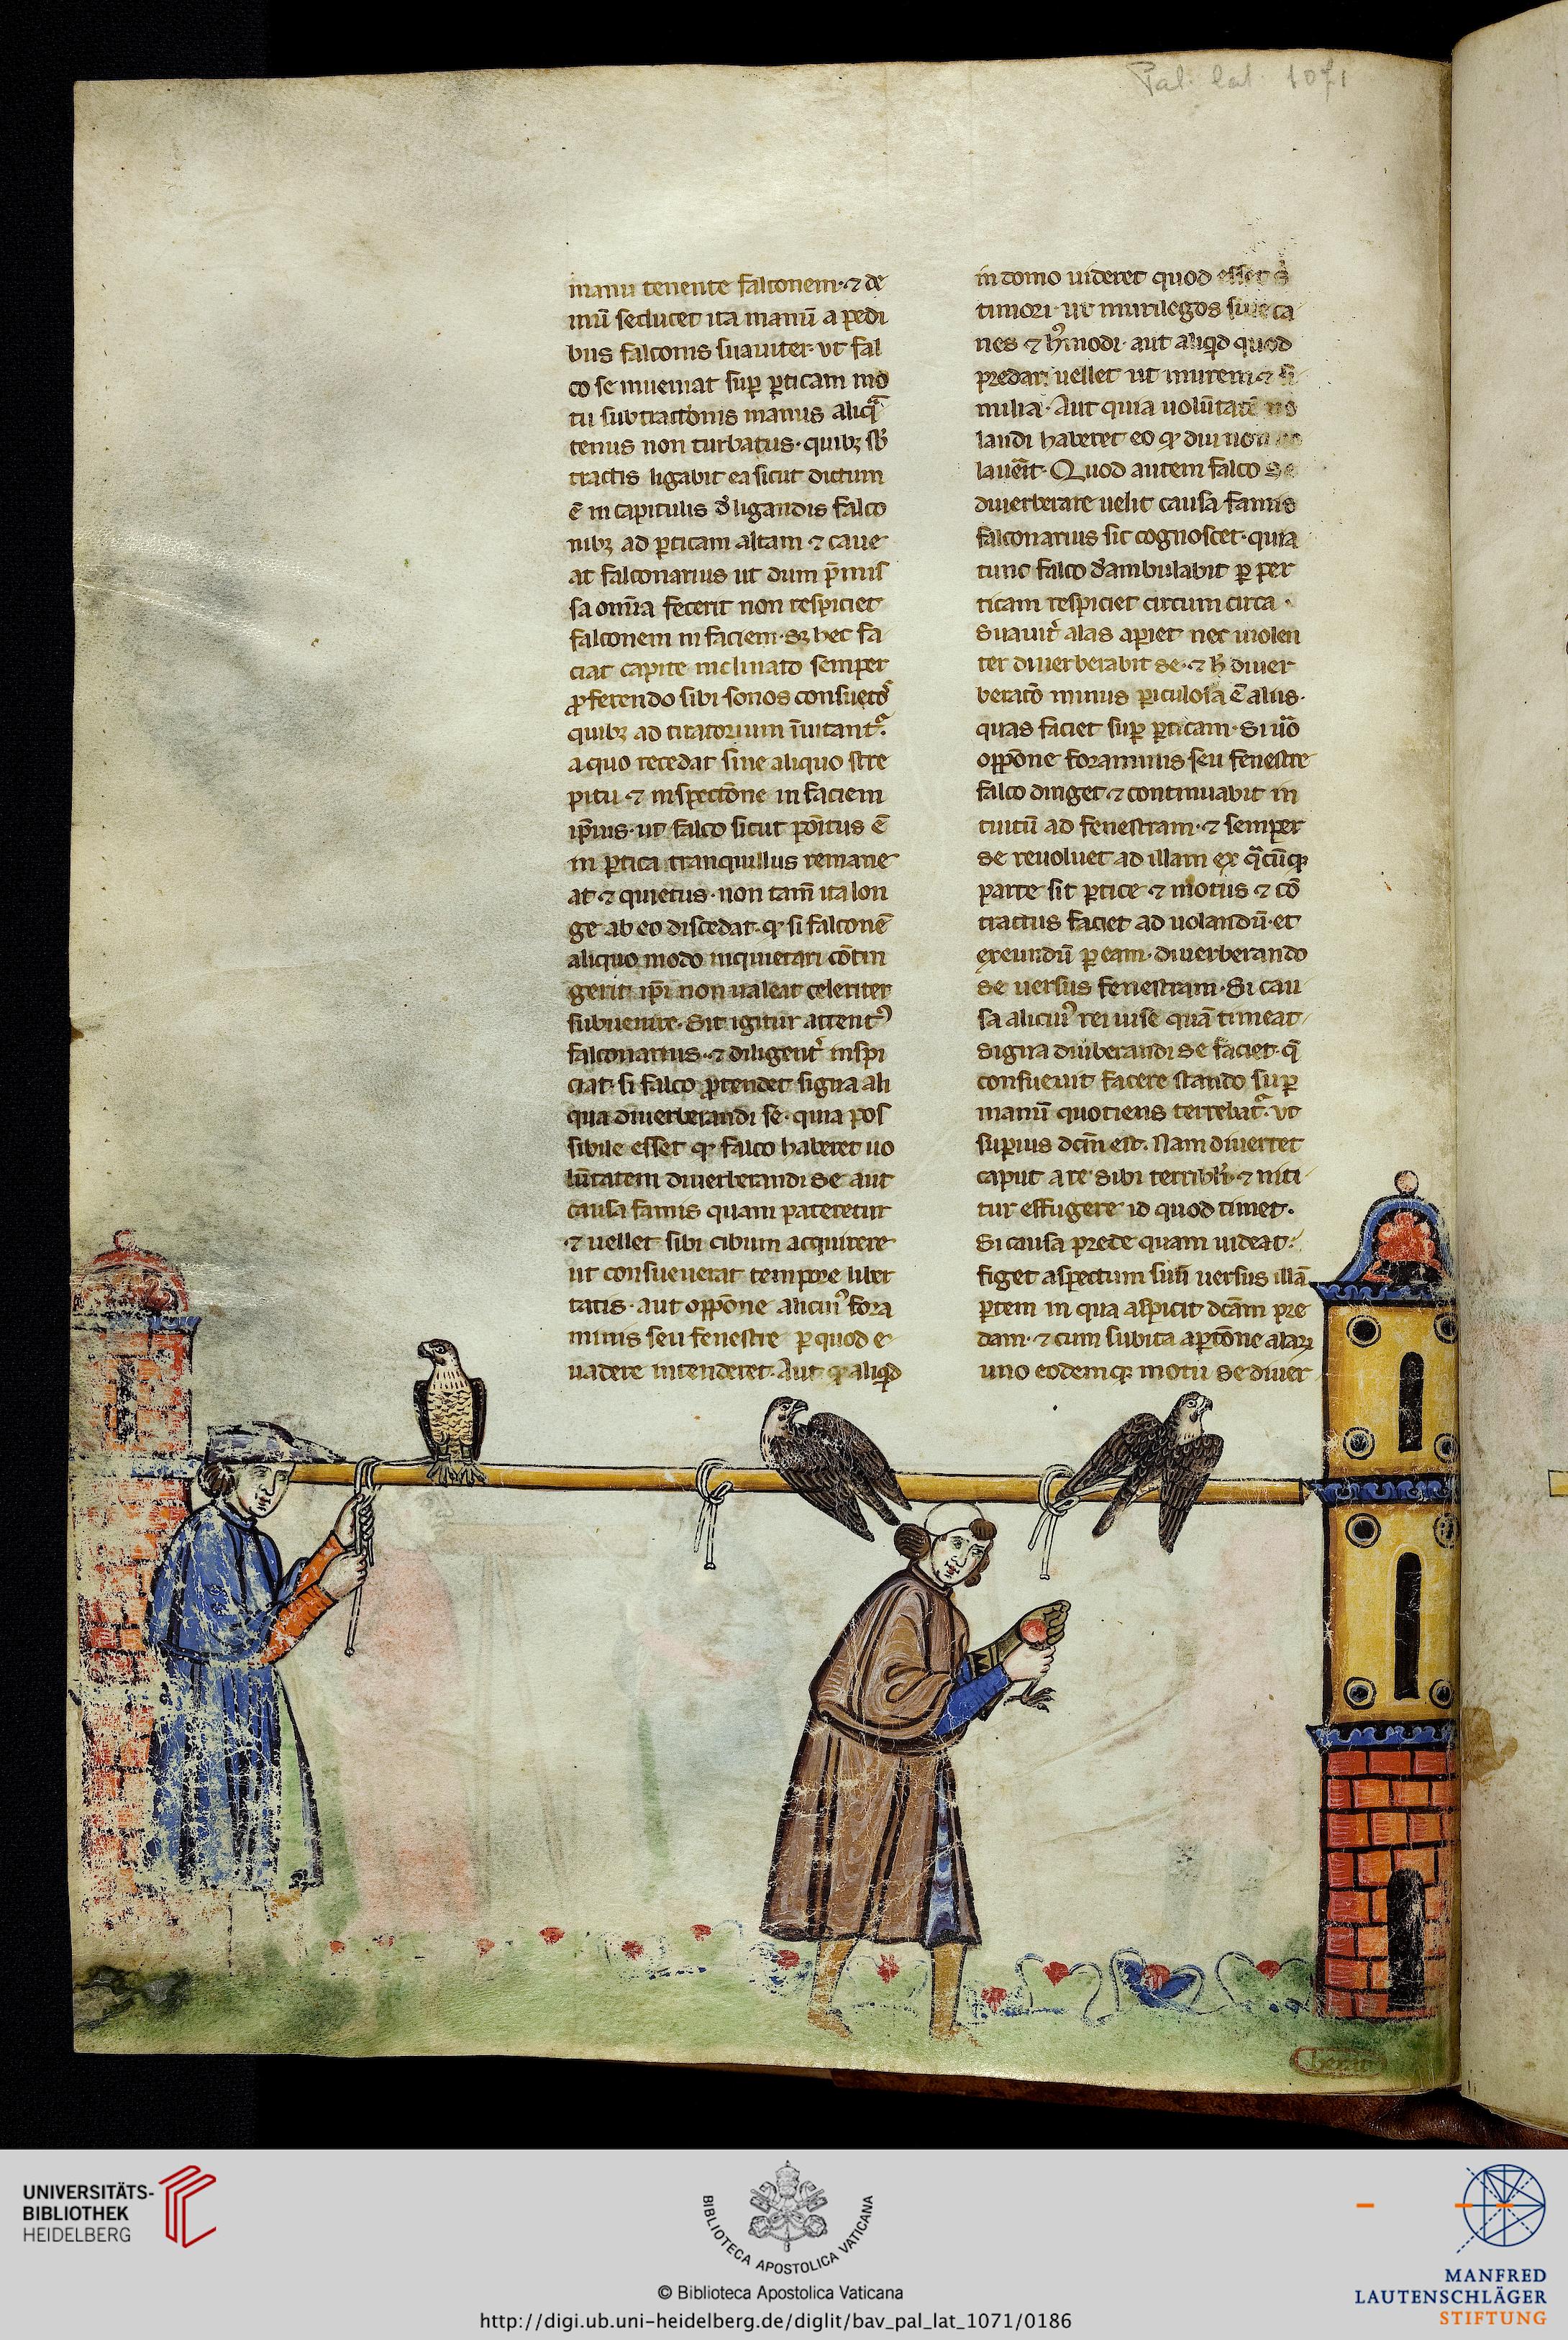 Pal. lat. 1071
manu tenente falconem · ⁊ de
mū seducet ita manū a pedi
bus falconis suauiter · vt fal
co se inueniat suꝑ ꝑticam mo
tu subtractionis manus aliqͣ
tenus non turbatus · quibꝫ sb̾
tractis ligabit ea sicut dictum
ē in capitulis d̾ ligandis falco
nibꝫ ad ꝑticam altam ⁊ caue
at falconarius ut dum p̄mis
sa omīa fecerit non respiciet
falconem in faciem · sꝫ hec fa
ciat capite inclinato semper
ꝓferendo sibi sonos consuetos
quibꝫ ad tiratorium īuitantᷣ ·
a quo recedat sine aliquo stre
pitu · ⁊ inspectōne in faciem
ip̄ius · ut falco sicut pōitus ē
in ꝑtica tranquillus remane
at · ⁊ quietus · non tam̄ ita lon
ge ab eo discedat · qꝛ si falconē
aliquo modo inquietari cōtin
gerit ip̄i non ualeat celeriter
subuenire · Sit igitur attentꝰ
falconarius · ⁊ diligent̾ inspi
ciat · si falco ꝓtendet signa ali
qua diuerberandi se · quia pos
sibile esset qꝛ falco haberet uo
lūtatem diuerberandi se aut
causa famis quam pateretur
⁊ uellet sibi cibum acquirere
ut consueuerat tempore liber
tatis · aut oppōne alicuiꝰ fora
minis seu fenestre ꝑ quod e
uadere intenderet · Aut qꝛ aliqͥd
in domo uideret quod esset s̾
timori · ut murilegos siue ca
nes ⁊ hꝰmodi · aut aliqͥd quod
predari uellet ut murem ⁊ si
milia · Aut quia uolūtatē uo
landi haberet eo qꝛ diu non uo
lauerit · Quod autem falco se
diuerberare uelit causa famis
falconarius sic cognoscet · quia
tunc falco d̾ambulabit ꝑ per
ticam respiciet circum circa ·
Suauit̾ alas apiet nec uiolen
ter diuerberabit se · ⁊ h̾ diuer
beratō minus ꝑiculosa ē aliis ·
quas faciet suꝑ ꝑticam · Si uō
oppōne foraminis seu fenestre
falco diriget ⁊ continuabit in
tuitū ad fenestram · ⁊ semper
se reuoluet ad illam ex qͣcūqꝫ
parte sit ꝑtice ⁊ motus ⁊ cō
tractus faciet ad uolandū · et
exeundū ꝑ eam · diuerberando
se uersus fenestram · Si cau
sa alicuiꝰ rei uise quā timeat
signa diuiberandi se faciet · q̄
consueuit facere stando suꝑ
manū quotiens terrebatᷣ · vt
suꝑius dc̄m est. Nam diuertet
caput a re sibi terribili · ⁊ niti
tur effugere id quod timet ·
Si causa prede quam uideat ·
figet aspectum suū uersus illā
ꝑtem in qua aspicit dc̄am pre
dam · ⁊ cum subita aꝑtōne alaꝝ
uno eodemqꝫ motu se diuer
UNIVERSITÄTS-
BIBLIOTHEK
HEIDELBERG
BIBLIOTECA APOSTOLICA VATICANA
© Biblioteca Apostolica Vaticana
http://digi.ub.uni-heidelberg.de/diglit/bav_pal_lat_1071/0186
MANFRED
LAUTENSCHLÄGER
STIFTUNG